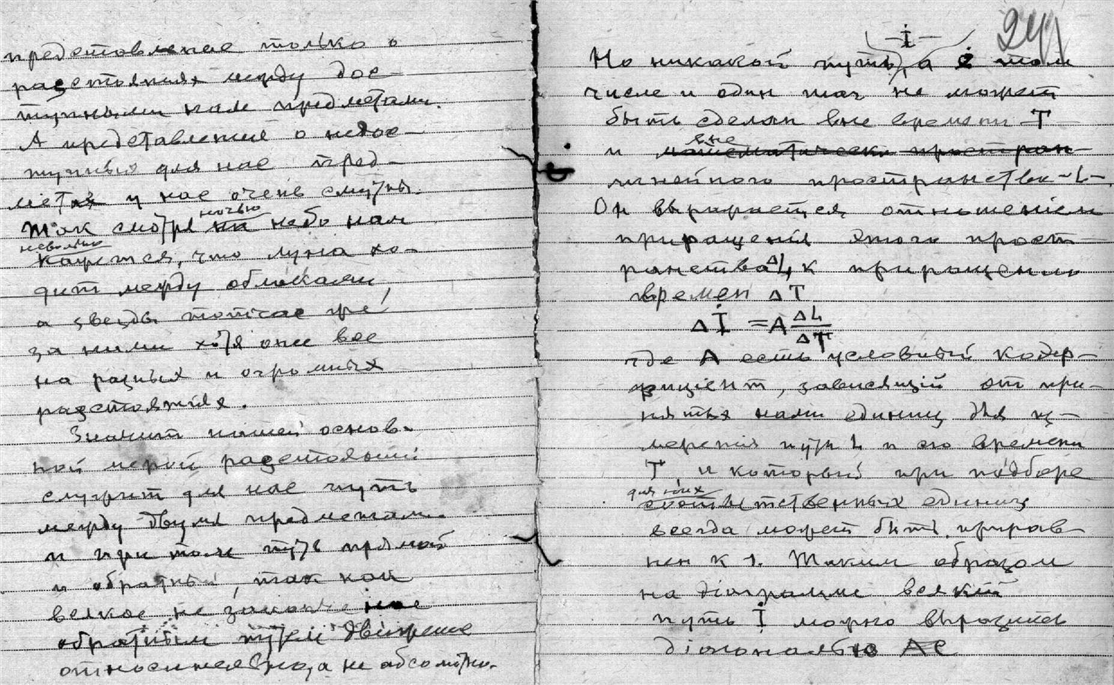 представление только о
расстояниях между дос-
тупными нам предметами.
А представления о недос-
тупных для нас пред-
метах у нас очень смутны.
Так смотря ночью на небо нам
невольно
кажется, что луна хо-
дит между облаками,
а звезды тотчас же
за ними хотя они все
на разных и огромных
расстояниях.
Значит нашей основ-
ной мерой расстояний
служит для нас путь
между двумя предметами
и при том путь прямой
и обратный, так как
всякое не законченное
обратным путем движение
относительно, а не абсолютно.
241
-İ-
Но никакой путь, а в том
числе и один шаг не может
быть сделан вне времени T
вне
и математически простран-
линейного пространства -L-
Он выражается отношением
приращения этого прост-
ранства ΔL к приращению
времен ΔT
Δİ = A ΔL/ΔT
где A есть условный коэф-
фициент, зависящий от при-
нятых нами единиц для из-
мерения пути L и его времени
T и который при подборе
для них
соответственных единиц
всегда может быть прирав-
нен к 1. Таким образом
на диаграмме всякий
путь İ можно выразить
диагональю AC